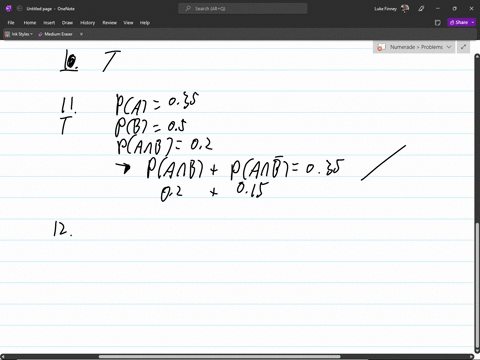 Untitled page - OneNote
Search (Alt+Q)
Luke Finney
File Home Insert Draw View Help
Share
Ink Styles Medium Eraser
Numerade > Problems
10. T
11. P(A) = 0.35
T P(B) = 0.5
P(A∩B) = 0.2
→ P(A∩B) + P(A∩B̄) = 0.35
0.2 + 0.15
12.